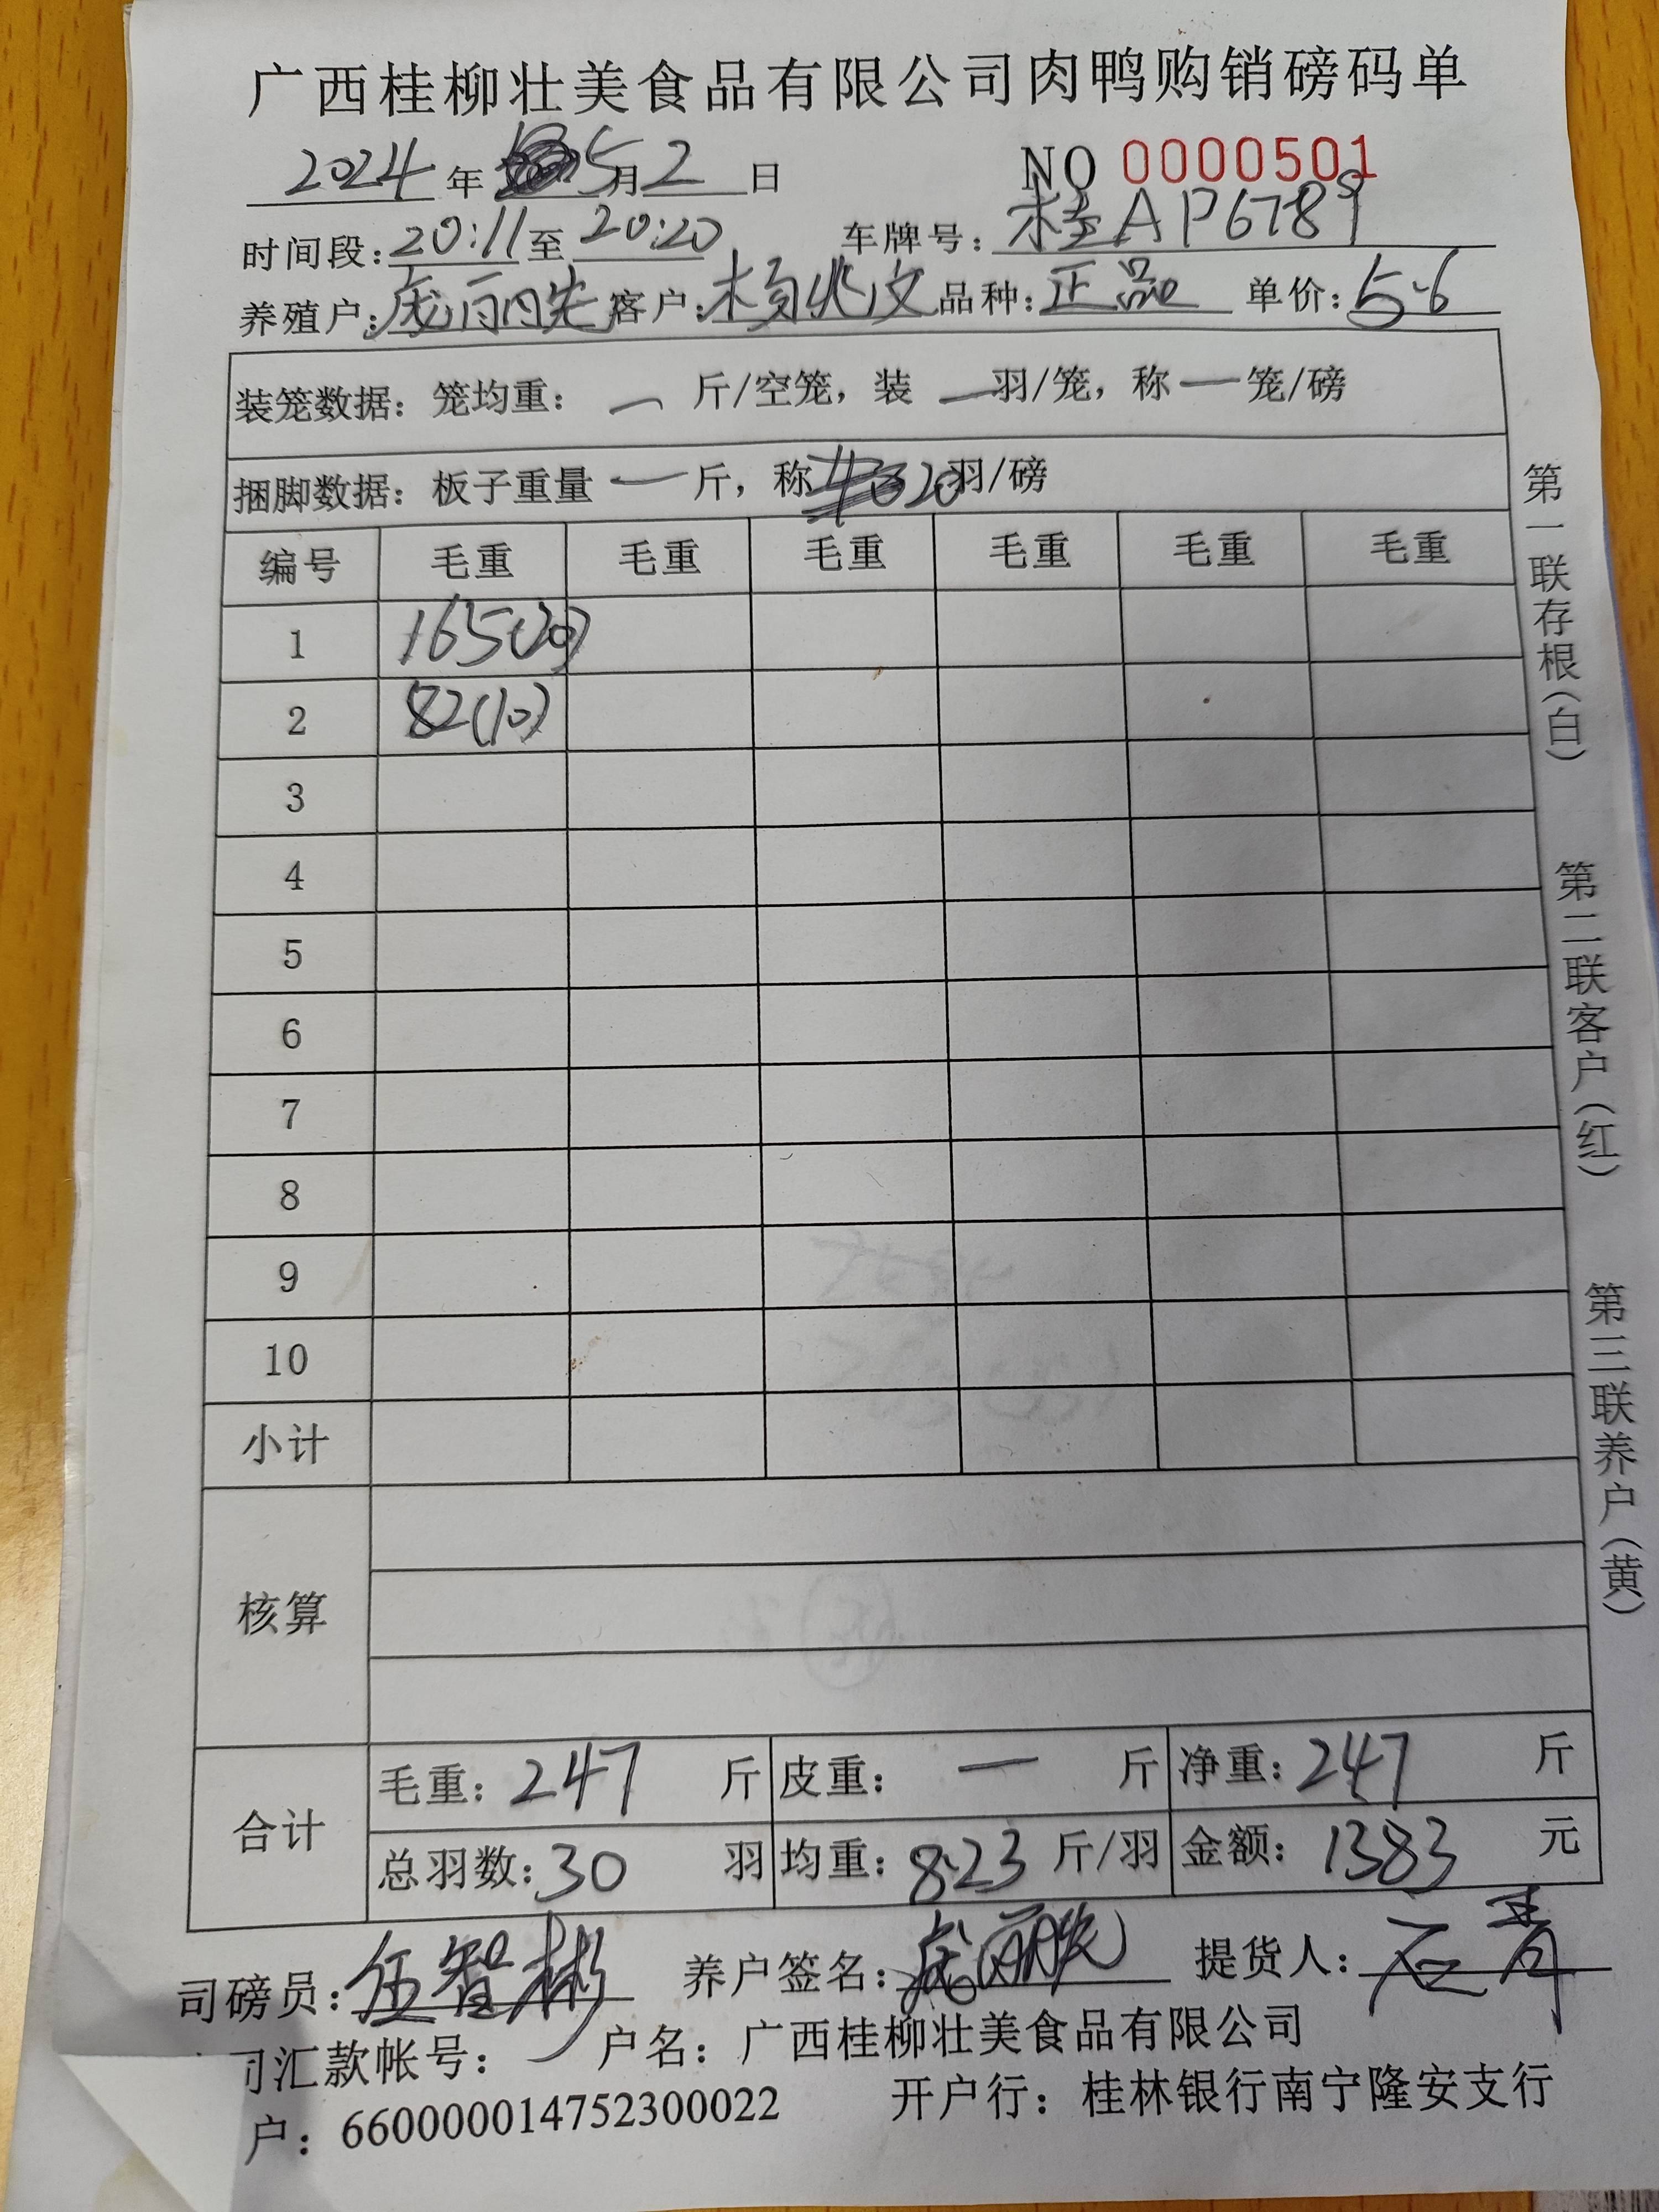 广西桂柳壮美食品有限公司肉鸭购销磅码单
2024年 5月2日 NO 0000501
时间段:20:11至20:20 车牌号:桂AP6789
养殖户:庞丽先 客户:杨兆文 品种:正品 单价:5.6
装笼数据:笼均重:— 斤/空笼,装 — 羽/笼,称 — 笼/磅
捆脚数据:板子重量 — 斤,称 20羽/磅
编号 毛重 毛重 毛重 毛重 毛重 毛重
1 165(20)
2 82(10)
3
4
5
6
7
8
9
10
小计
核算
合计
毛重:247 斤 皮重:— 斤 净重:247 斤
总羽数:30 羽 均重:8.23 斤/羽 金额:1383 元
司磅员:伍智彬 养户签名: 提货人:石青
司汇款帐号: 户名:广西桂柳壮美食品有限公司
户:660000014752300022 开户行:桂林银行南宁隆安支行
第一联存根(白)
第二联客户(红)
第三联养户(黄)